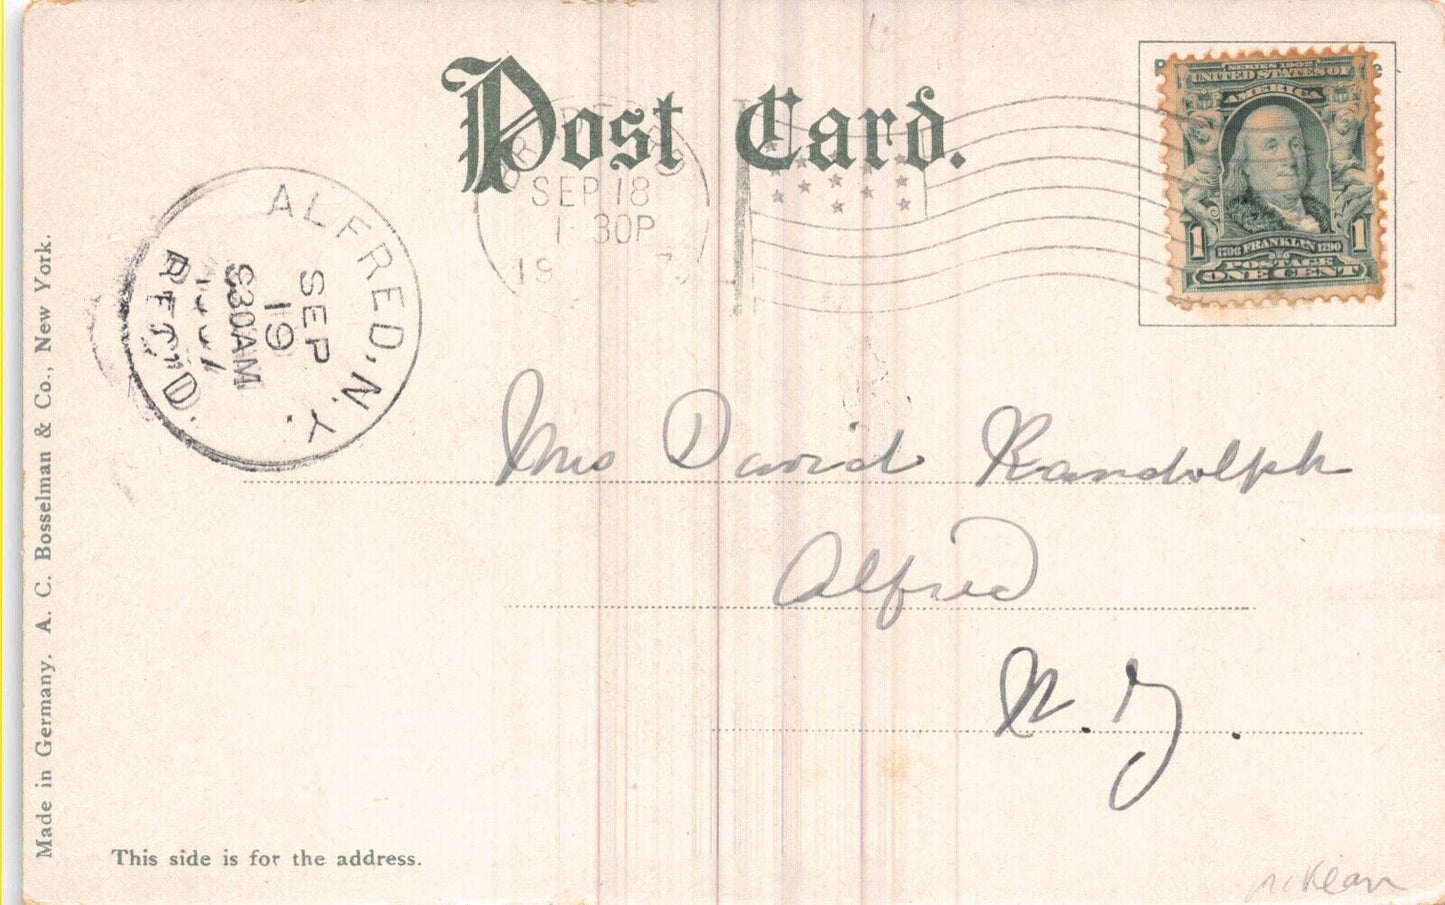 Post Card.
SEP 18
1 30P
19 7
SERIES 1902
UNITED STATES OF
AMERICA
1 1706 FRANKLIN 1790 1
POSTAGE
ONE CENT
ALFRED, N.Y.
SEP
19
830AM
REC'D.
Mrs David Randolph
Alfred
N. Y.
Made in Germany. A. C. Bosselman & Co., New York.
This side is for the address.
McKean